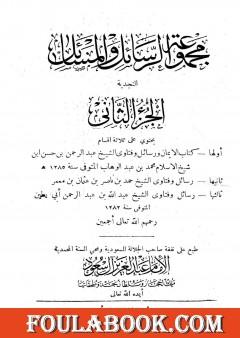 مجموعة الرسائل والمسائل
النجدية
الجزء الثاني
يحتوي على ثلاثة أقسام
أولها — كتاب الايمان ورسائل وفتاوى الشيخ عبد الرحمن بن حسن ابن
شيخ الاسلام محمد بن عبد الوهاب المتوفى سنة ١٢٨٥ هـ
ثانيها — رسائل وفتاوى الشيخ حمد بن ناصر بن عثمان بن معمر
ثالثها — رسائل وفتاوى الشيخ عبد الله بن عبد الرحمن أبي بطين
المتوفى سنة ١٢٨٢
رحمهم الله تعالى أجمعين
طبع على نفقة صاحب الجلالة السعودية ومحيي السنة المحمدية
الإمام عبد العزيز آل سعود
ملك الحجاز ونجد وملحقاتها
أيده الله تعالى
FOULABOOK.COM